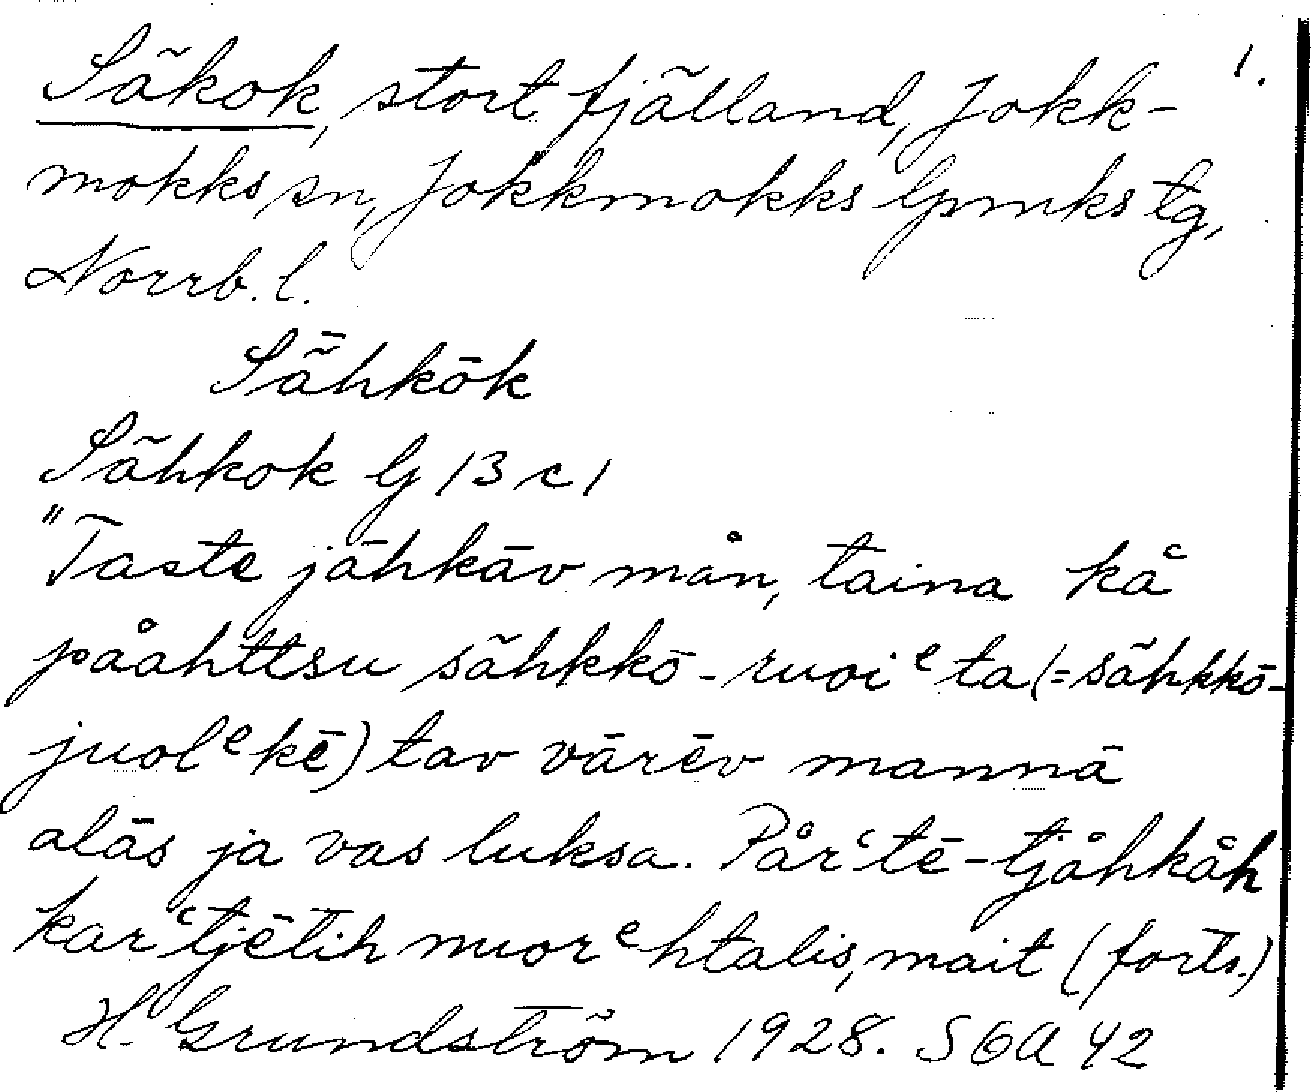 1.
Säkok, stort fjälland, Jokk-
mokks sn, Jokkmokks lpmks tg,
Norrb. l.
Sǟhkōk
Sähkok G 13 c 1
"Taste jāhkāv mån, taina kå
pååhttsu sähkkō-ruoiᵉta (=sähkkō-
juolᵉkē) tav vārēv mannā
alās ja vas luksa. Pårʿtē-tjåhkåh
karʿtjētih nuorᵉhtalis, mait (forts.)
H. Grundström 1928. SOA 42